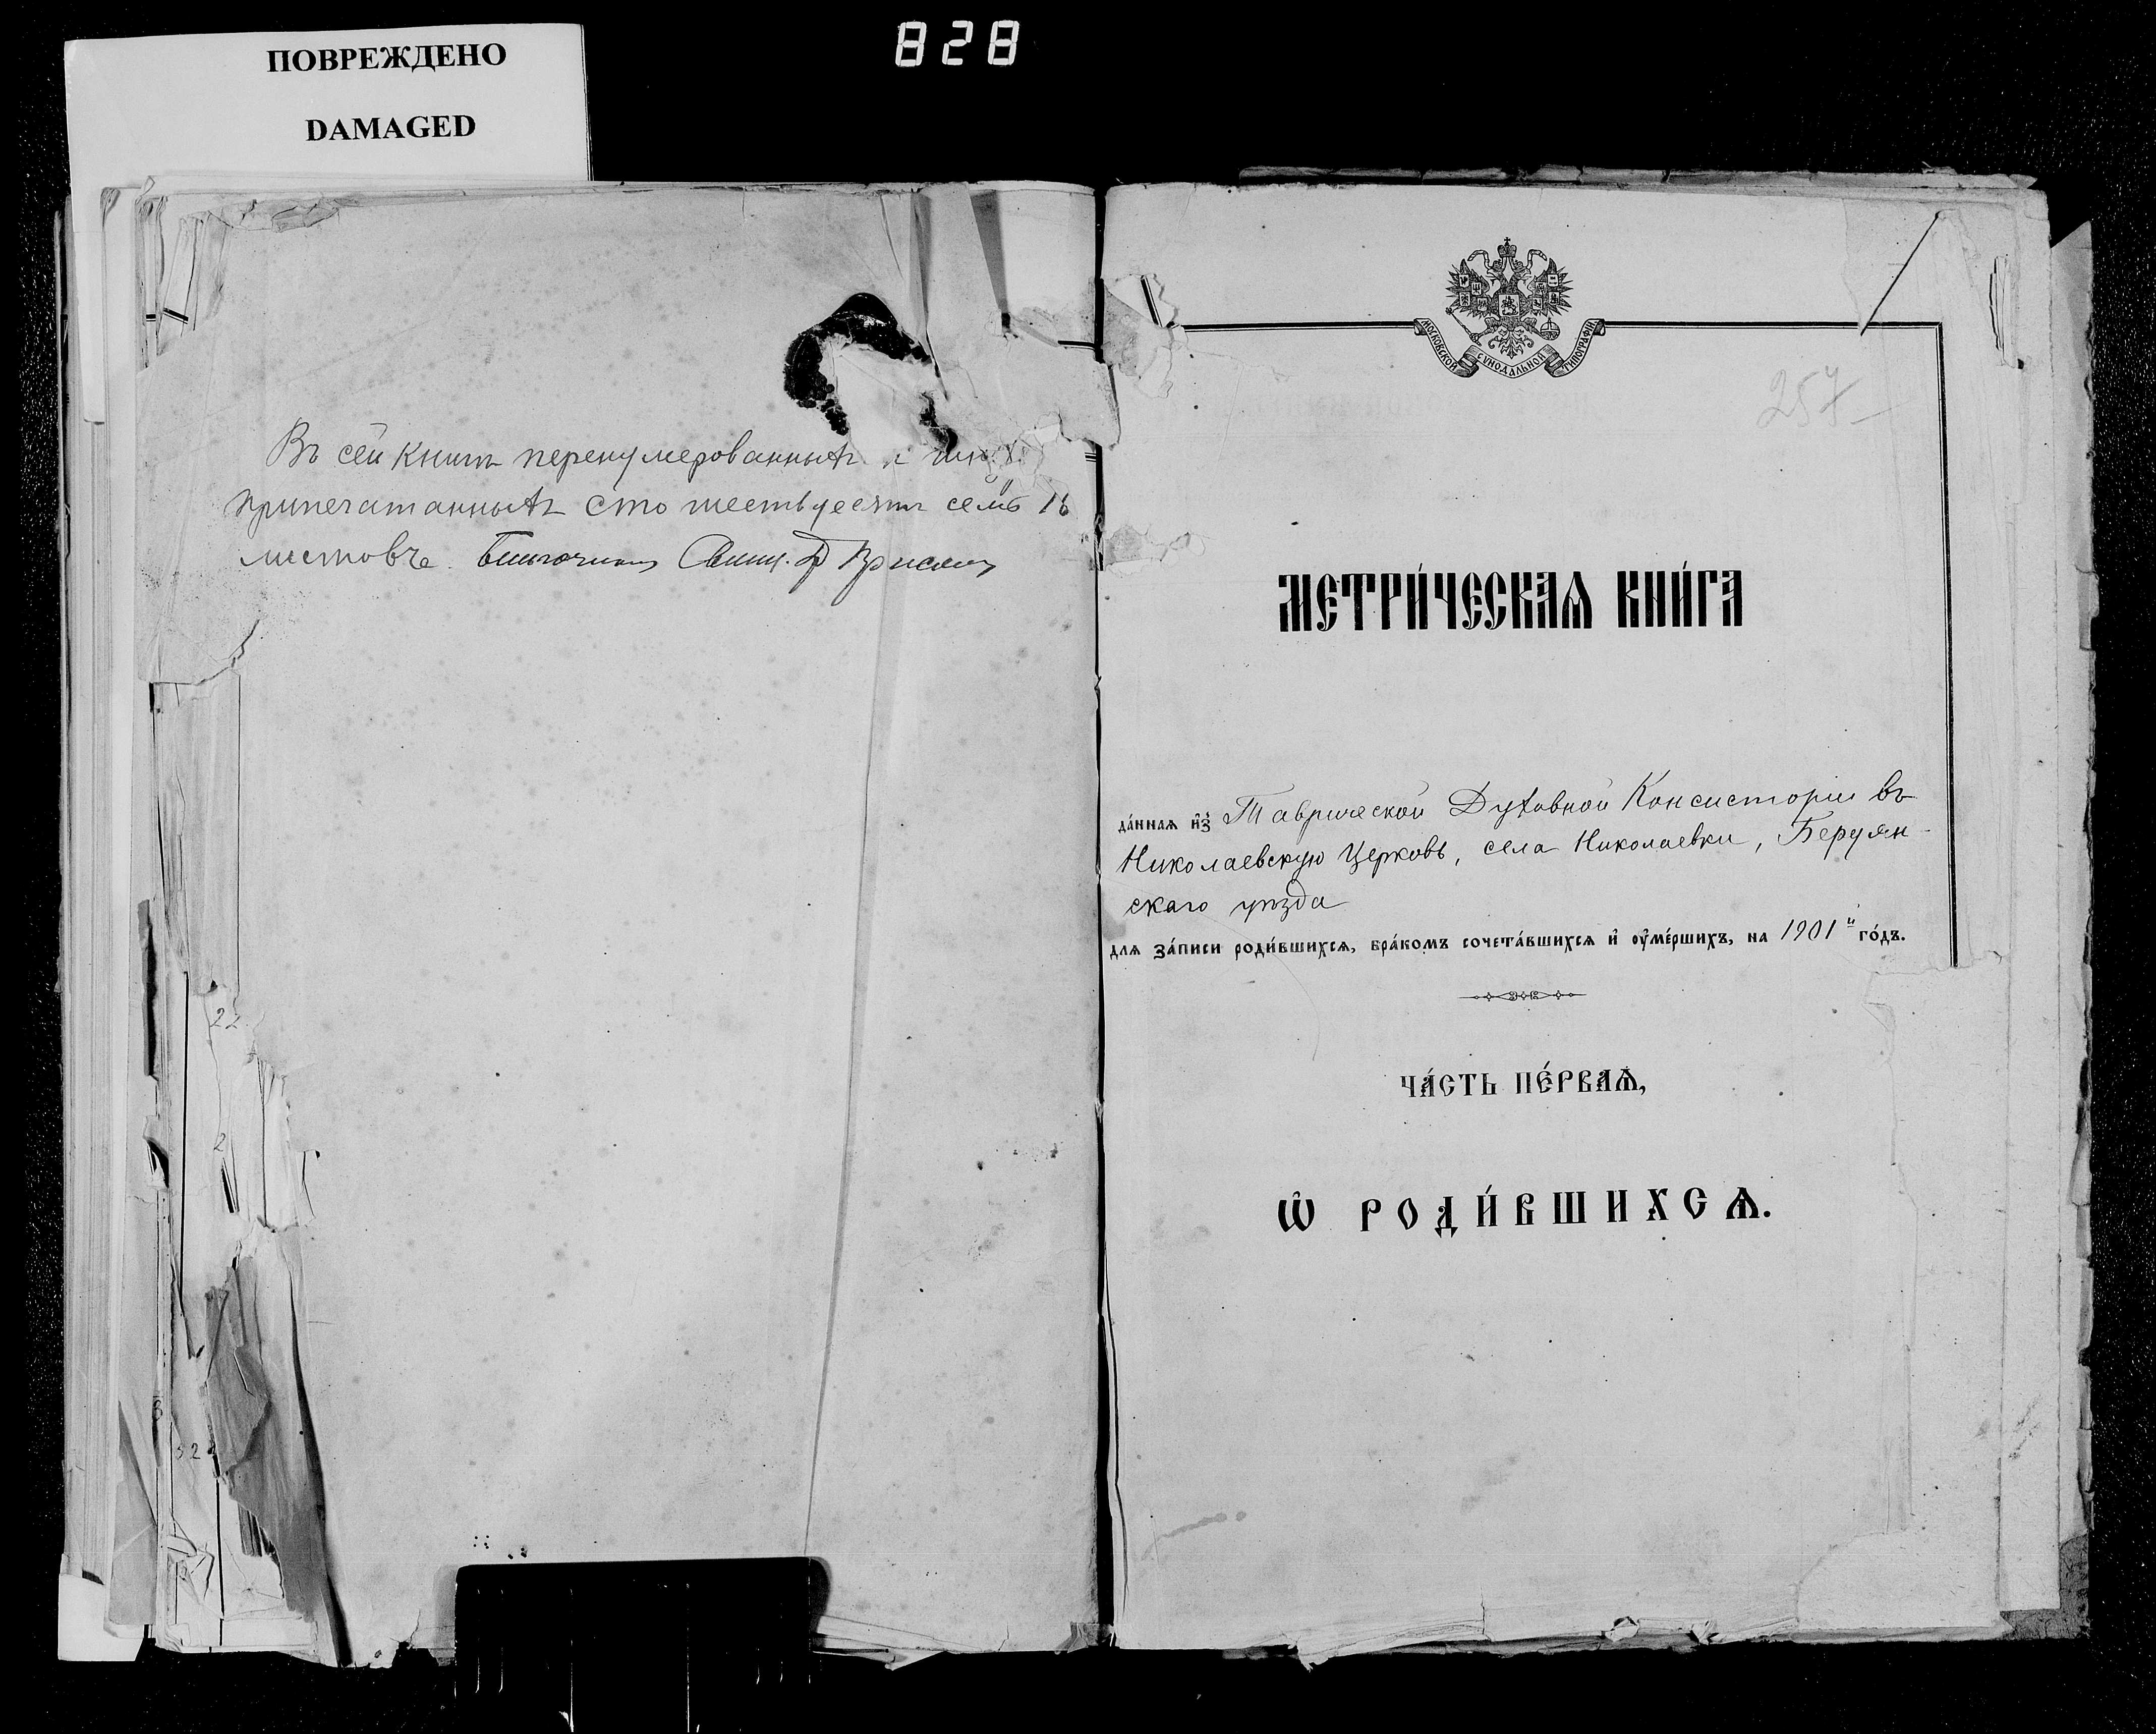 ПОВРЕЖДЕНО
DAMAGED
828
Въ сей книгѣ перенумерованныхъ и
припечатанныхъ сто шестьдесятъ семь
листовъ. Благочинный Свящ.
МОСКОВСКОЙ СѴНОДАЛЬНОЙ ТИПОГРАФІИ
257
МЕТРИ́ЧЕСКАѦ КНИ́ГА
да́ннаѧ и҆з̾ Таврической Духовной Консисторіи въ
Николаевскую Церковь, села Николаевки, Бердян-
скаго уѣзда
длѧ за́писи роди́вшихсѧ, бра́комъ сочета́вшихсѧ и҆ ᲂу҆ме́ршихъ, на 1901й го́дъ.
ЧА́СТЬ ПЕ́РВАѦ,
Ѡ҆ РОДИ́ВШИХСѦ.
22
2